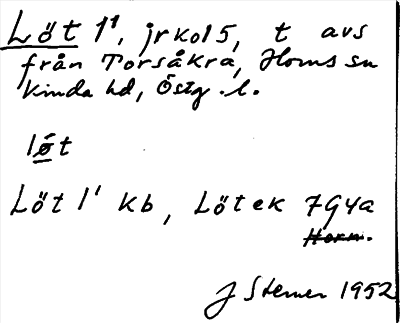 Löt 1¹, jrko15, t avs
från Torsåkra, Horns sn
Kinda hd, Östg. l.
löt
Löt 1¹ kb, Lötek 7G4a
Horn.
J Sterner 1952